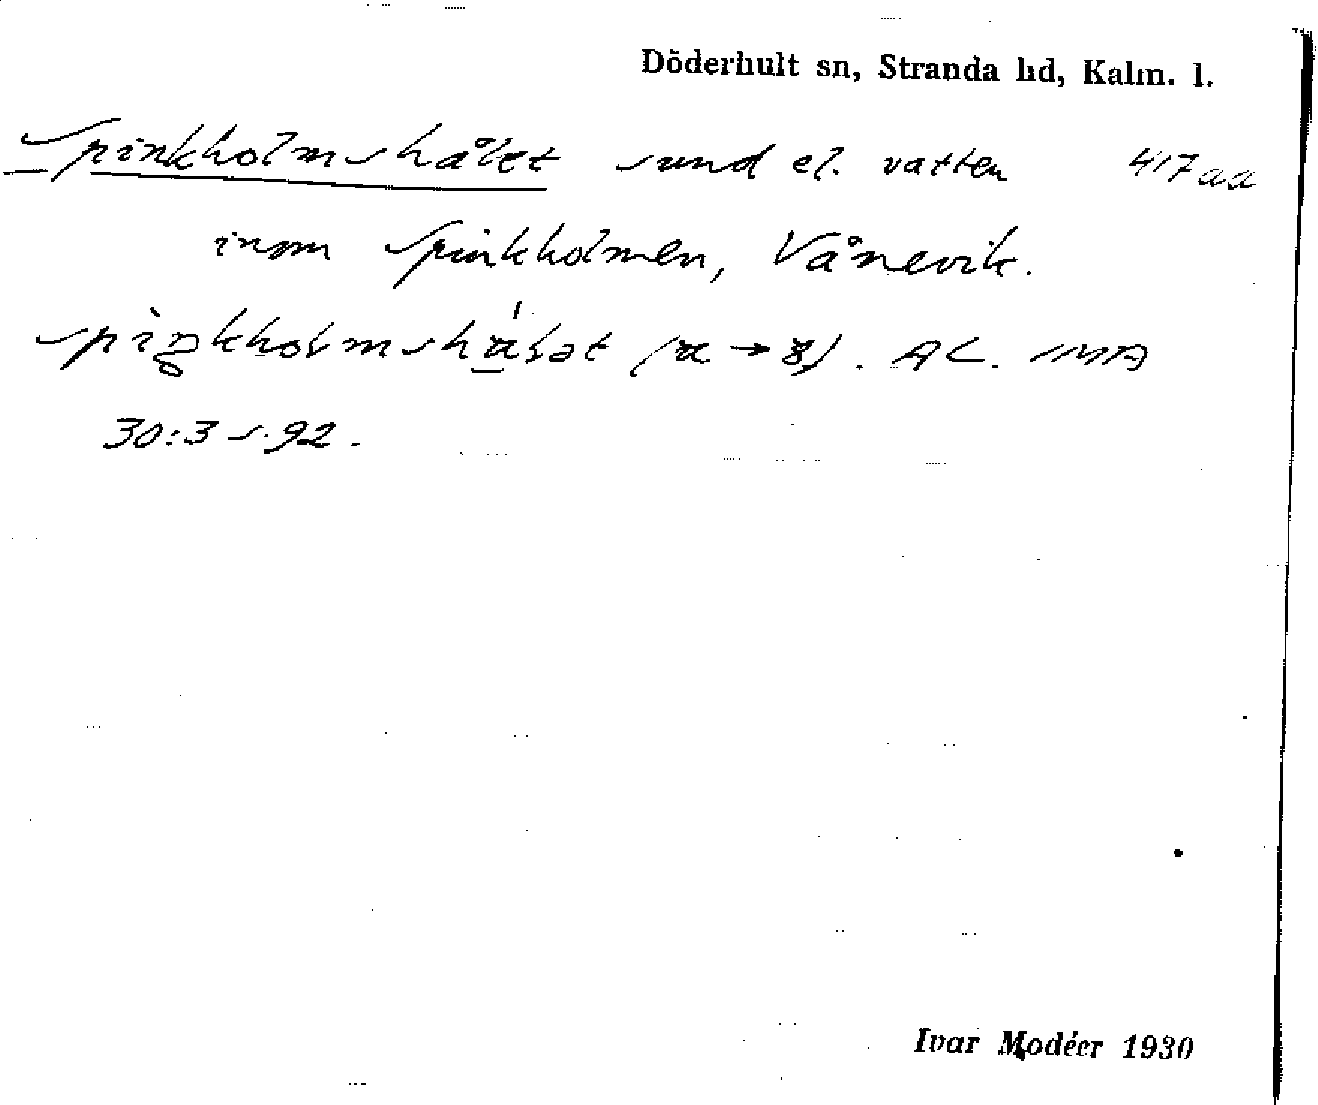 Döderhult sn, Stranda hd, Kalm. l.
Spinkholmshålet sund el. vatten 417 aa
inom Spinkholmen, Vånevik.
AL. IMA
30:3 s. 92.
Ivar Modéer 1930